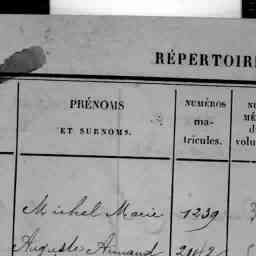 RÉPERTOIR
PRÉNOMS
ET SURNOMS.
NUMÉROS
ma-
tricules.
Michel Marie 1239
Auguste Armand